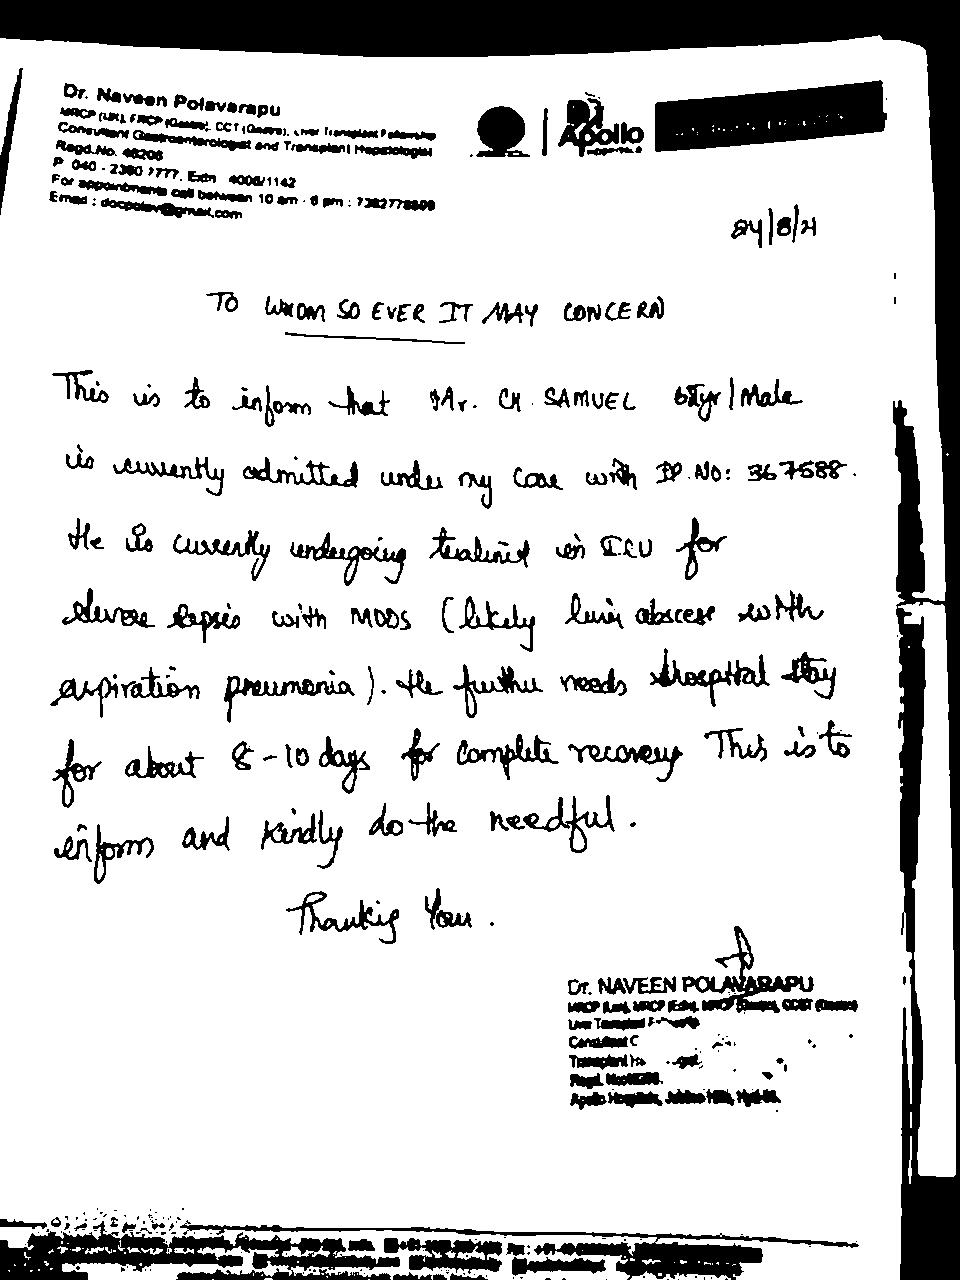 Dr. Naveen Polavarapu
MRCP (UK), FRCP (Gastro), CCT (Gastro), Liver Transplant Fellowship
Consultant Gastroenterologist and Transplant Hepatologist
Regd.No. 46206
P 040 - 2360 7777, Extn 4006/1142
For appointments call between 10 am - 6 pm :
Email : docpolav@gmail.com
Apollo
HOSPITALS
24/8/21
TO WHOM SO EVER IT MAY CONCERN
This is to inform that Mr. CH. SAMUEL yr/Male
is currently admitted under my care with IP.NO: 367588.
He is currently undergoing treatment in ICU for
severe sepsis with MODS (likely liver abscess with
aspiration pneumonia). He further needs Hospital stay
for about 8-10 days for complete recovery This is to
inform and kindly do the needful.
Thanking You.
Dr. NAVEEN POLAVARAPU
MRCP (Lon), MRCP (Edin), MRCP (Gastro), CCST (Gastro)
Liver Transplant
Consultant
Transplant
Regd. No:46206.
Apollo Hospitals, Jubilee Hills, Hyd-